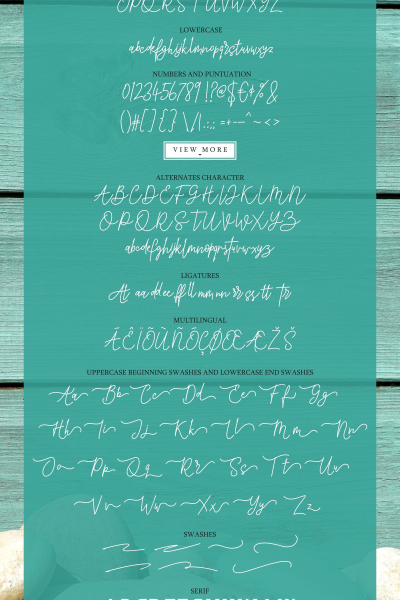 OPQRSTUVWXYZ
LOWERCASE
abcdefghijklmnopqrstuvwxyz
NUMBERS AND PUNTUATION
0123456789!?@$€+%&
()#[]{}\/|.:,; =+-–^~<>
VIEW MORE
ALTERNATES CHARACTER
ABCDEFGHIJKLMN
OPQRSTUVWXYZ
abcdefghijklmnopqrstuvwxyz
LIGATURES
At aa dd ee ff ll mm nn rr ss tt tr
MULTILINGUAL
UPPERCASE BEGINNING SWASHES AND LOWERCASE END SWASHES
Aa Bb Cc Dd Ee Ff Gg
Hh Ii Jj Kk Ll Mm Nn
Oo Pp Qq Rr Ss Tt Uu
Vv Ww Xx Yy Zz
SWASHES
SERIF